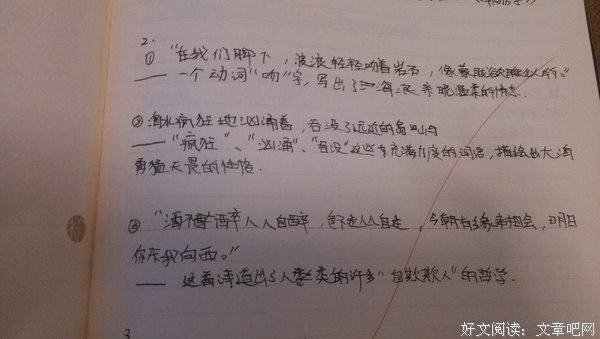 2.
① "在我们脚下，波浪轻轻吻着岩石，像蒙眬欲睡似的。"
—— 一个动词"吻"字，写出了海浪亲昵温柔的情态.
② 海水疯狂地汹涌着，吞没了远近的岛屿
——"疯狂"、"汹涌"、"吞没"这些充满力度的词语，描绘出大海
勇猛无畏的性格.
③ "酒不醉人人自醉，色不迷人人自迷，今朝有缘来相会，明日
你东我向西。"
—— 这首诗道出了人类的许多"自欺欺人"的哲学.
3
好文阅读：文章吧网